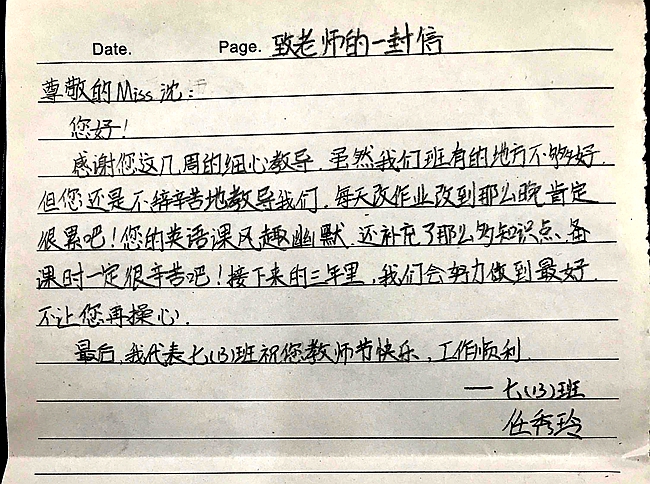 Date. Page. 致老师的一封信
尊敬的Miss 沈：
您好！
感谢您这几周的细心教导，虽然我们班有的地方不够好，
但您还是不辞辛苦地教导我们，每天改作业改到那么晚肯定
很累吧！您的英语课风趣幽默，还补充了那么多知识点、备
课时一定很辛苦吧！接下来的三年里，我们会努力做到最好，
不让您再操心。
最后，我代表七(13)班祝您教师节快乐，工作顺利。
—— 七(13)班
任秀玲